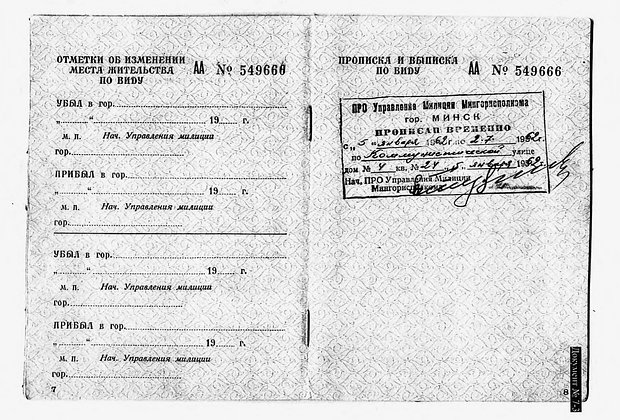 ОТМЕТКИ ОБ ИЗМЕНЕНИИ
МЕСТА ЖИТЕЛЬСТВА
ПО ВИДУ
АА № 549666
УБЫЛ в гор.
„ “ 19 г.
М. П. Нач. Управления милиции
гор.
ПРИБЫЛ в гор.
„ “ 19 г.
М. П. Нач. Управления милиции
гор.
УБЫЛ в гор.
„ “ 19 г.
М. П. Нач. Управления милиции
гор.
ПРИБЫЛ в гор.
„ “ 19 г.
М. П. Нач. Управления милиции
гор.
7
ПРОПИСКА И ВЫПИСКА
ПО ВИДУ
АА № 549666
ПРО Управления Милиции Мингорисполкома
гор. МИНСК
ПРОПИСАН ВРЕМЕННО
С „5“ января 1962 г. по 2.7. 1962 г.
по Коммунистической улице
дом № 4 кв. № 24 „5“ января 1962 г.
Нач. ПРО Управления Милиции
Мингорисполкома
8
Документ № 7-3